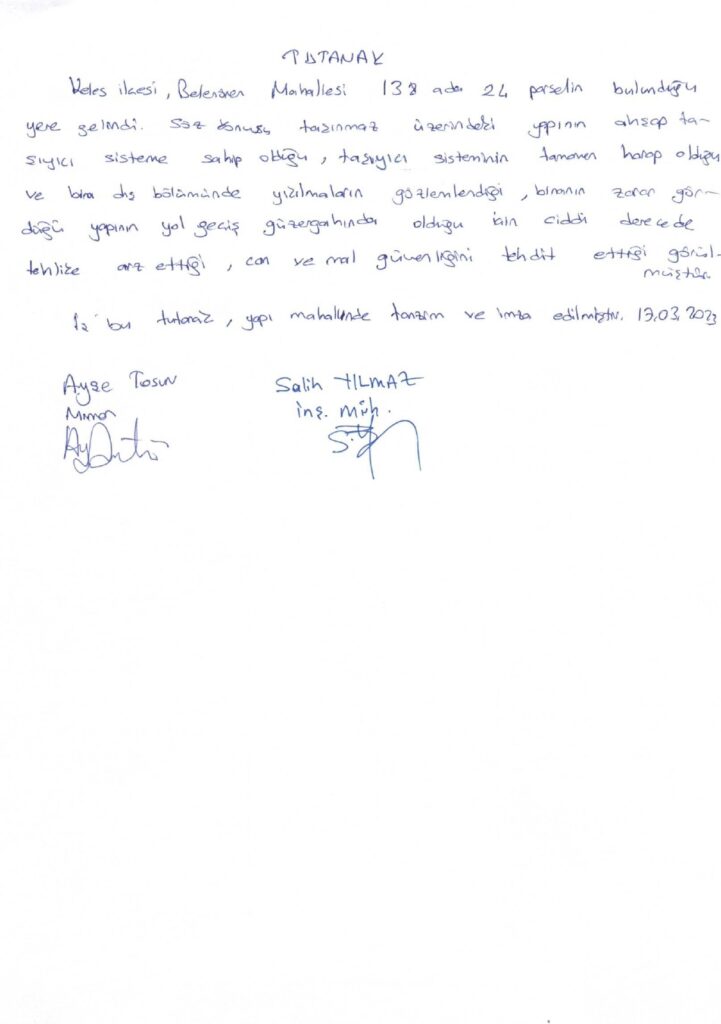 TUTANAK
Keles ilçesi, Belenören Mahallesi 138 ada 24 parselin bulunduğu
yere gelindi. Söz konusu taşınmaz üzerindeki yapının ahşap ta-
şıyıcı sisteme sahip olduğu, taşıyıcı sisteminin tamamen harap olduğu
ve bina dış bölümünde yıkılmaların gözlemlendiği, binanın zarar gör-
düğü yapının yol geçiş güzergahında olduğu için ciddi derecede
tehlike arz ettiği, can ve mal güvenliğini tehdit ettiği görül-
müştür.
İş bu tutanak, yapı mahallinde tanzim ve imza edilmiştir. 17.03.2023
Ayşe Tosun Salih YILMAZ
Mimar inş. müh.